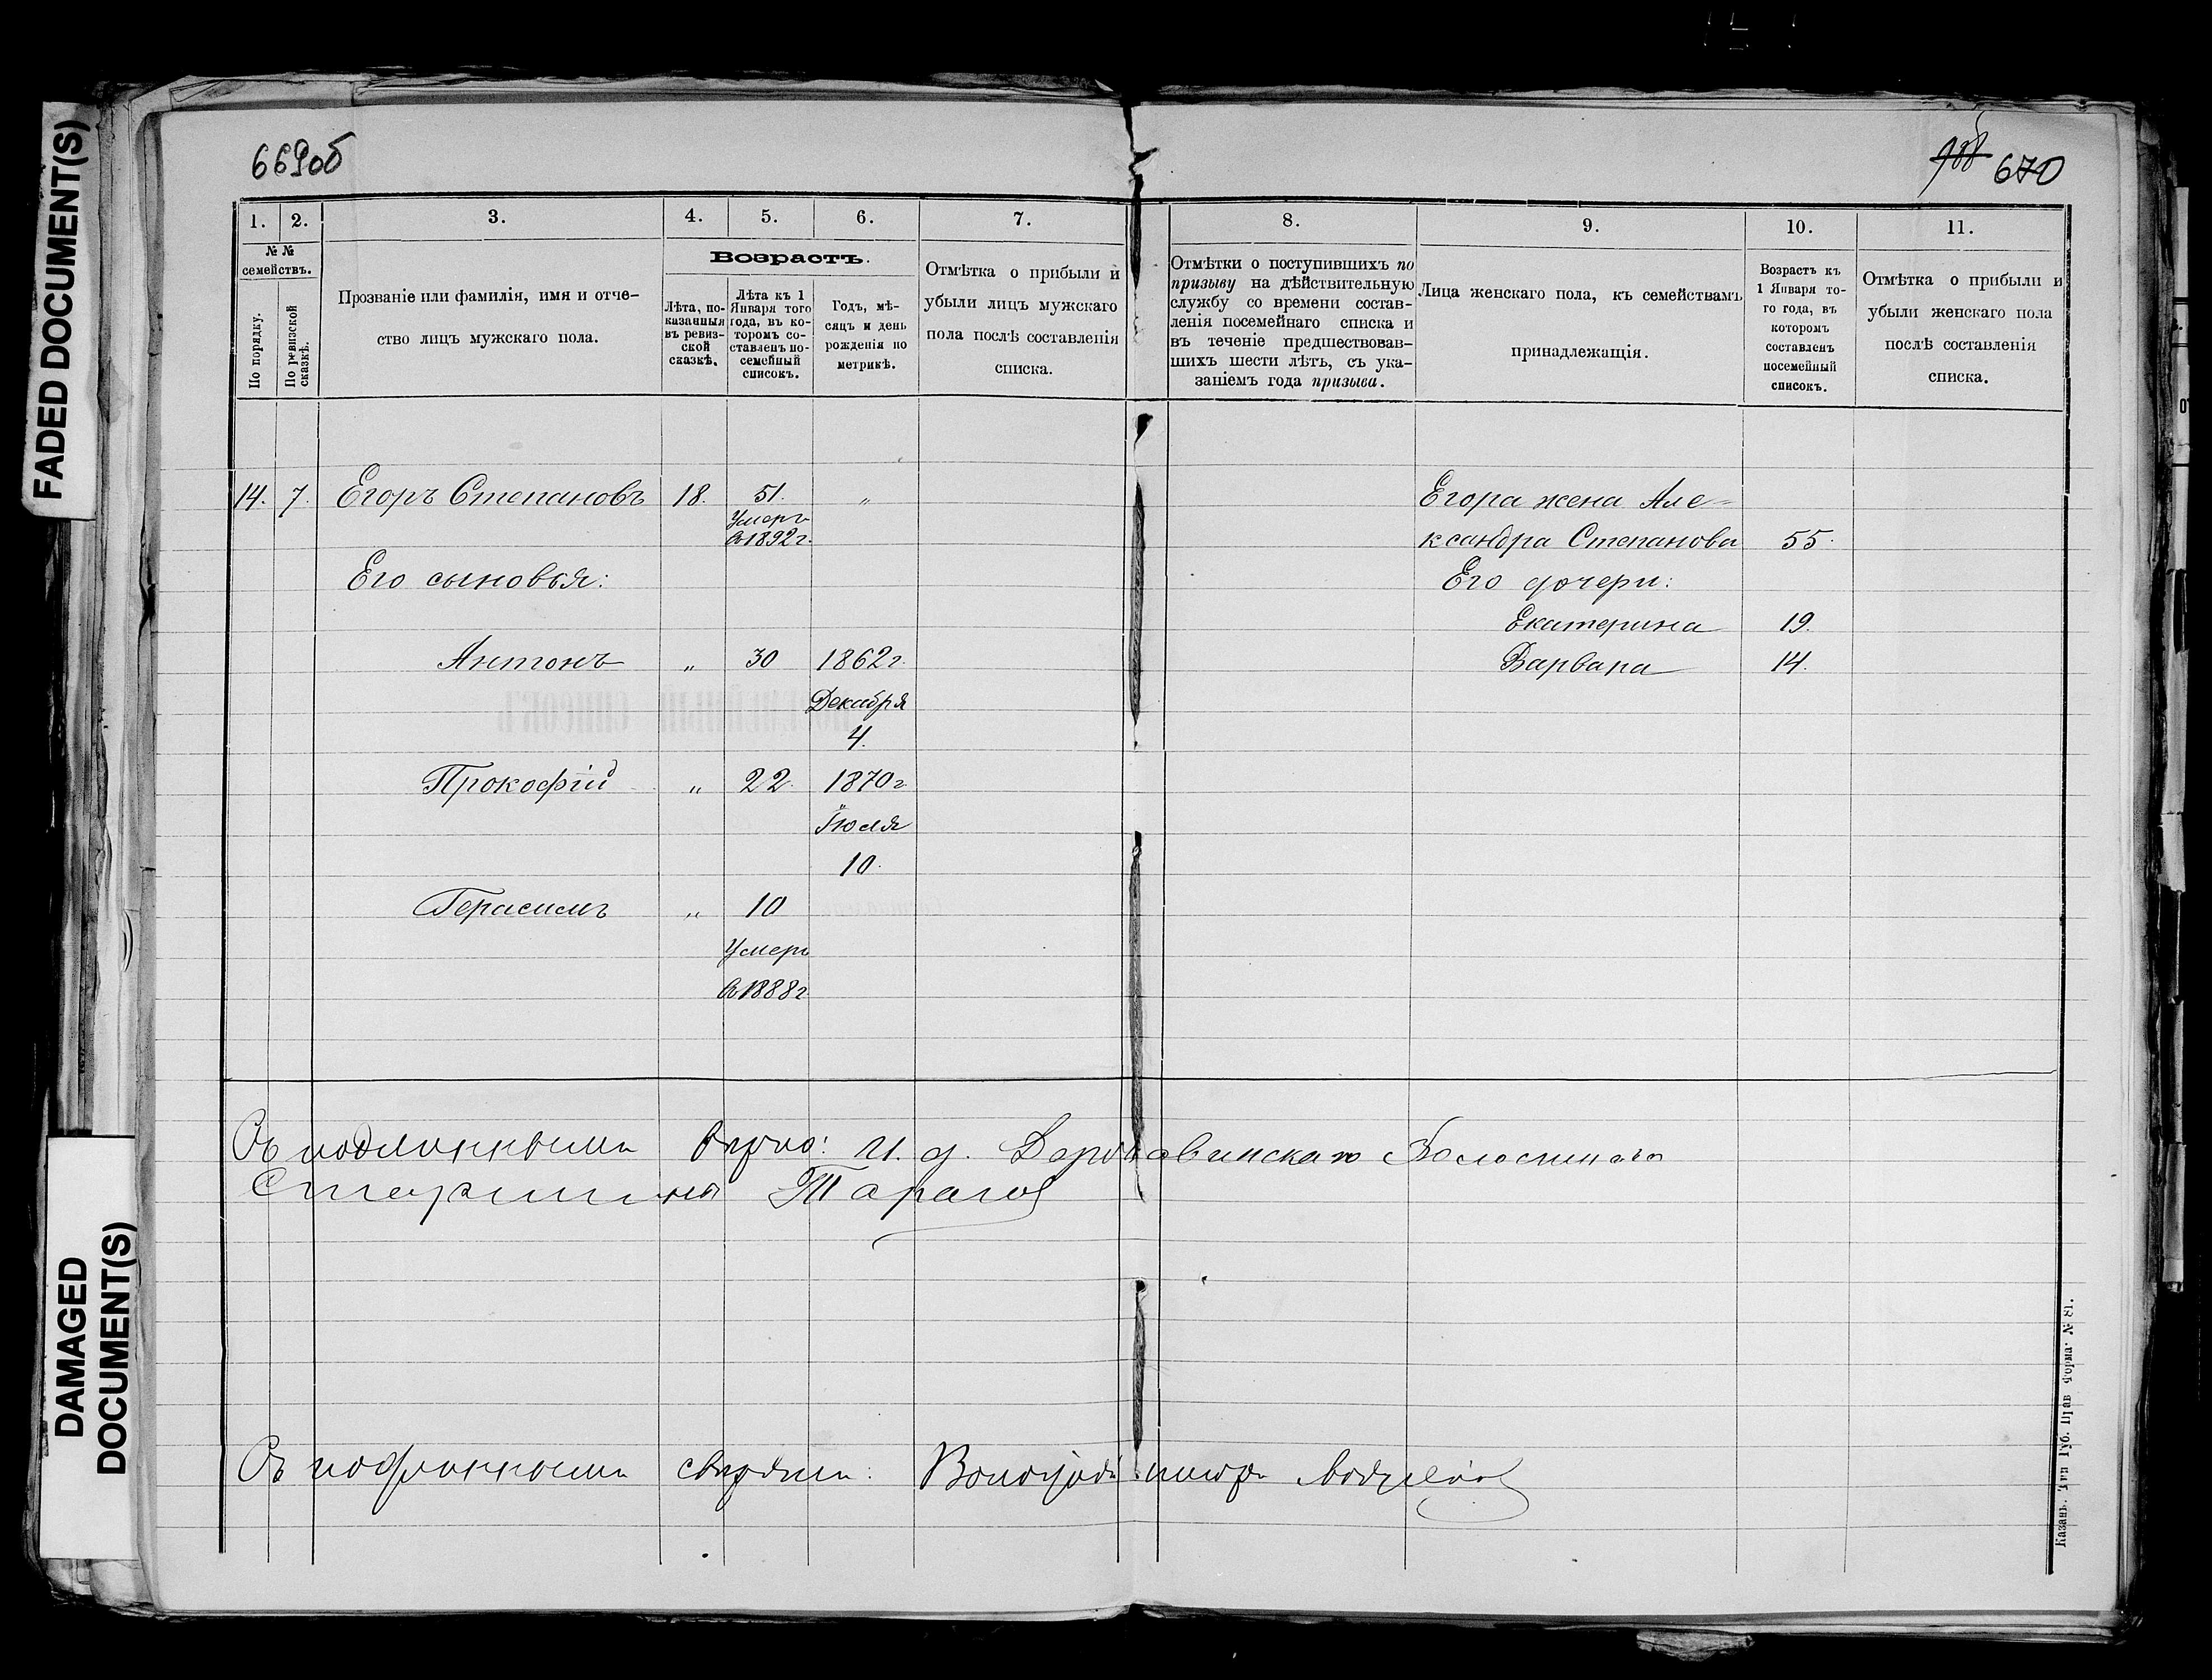 FADED DOCUMENT(S)
DAMAGED
DOCUMENT(S)
669об
670
1.
2.
3.
4.
5.
6.
7.
8.
9.
10.
11.
№ №
семействъ.
По порядку.
По ревизской
сказкѣ.
Прозваніе или фамилія, имя и отче-
ство лицъ мужскаго пола.
Возрастъ.
Лѣта, по-
казанныя
въ ревиз-
ской
сказкѣ.
Лѣта къ 1
Января того
года, въ ко-
торомъ со-
ставленъ по-
семейный
списокъ.
Годъ, мѣ-
сяцъ и день
рожденія по
метрикѣ.
Отмѣтка о прибыли и
убыли лицъ мужскаго
пола послѣ составленія
списка.
Отмѣтки о поступившихъ по
призыву на дѣйствительную
службу со времени состав-
ленія посемейнаго списка и
въ теченіе предшествовав-
шихъ шести лѣтъ, съ ука-
заніемъ года призыва.
Лица женскаго пола, къ семействамъ
принадлежащія.
Возрастъ къ
1 Января то-
го года, въ
которомъ
составленъ
посемейный
списокъ.
Отмѣтка о прибыли и
убыли женскаго пола
послѣ составленія
списка.
14. 7. Егоръ Степановъ 18. 51. „ Егора жена Але-
Умеръ
въ 1892 г. ксандра Степанова 55.
Его сыновья: Его дочери:
Екатерина 19.
Антонъ „ 30 1862 г. Варвара 14.
Декабря
4.
Прокофій „ 22. 1870 г
Іюля
10.
Герасимъ „ 10
Умеръ
въ 1888 г
Съ подлиннымъ вѣрно: И. д. Державинскаго Волостного
Старшины Тарасов
Съ подлиннымъ свѣрялъ:
Казань. Тип Губ. Прав Форма № 81.